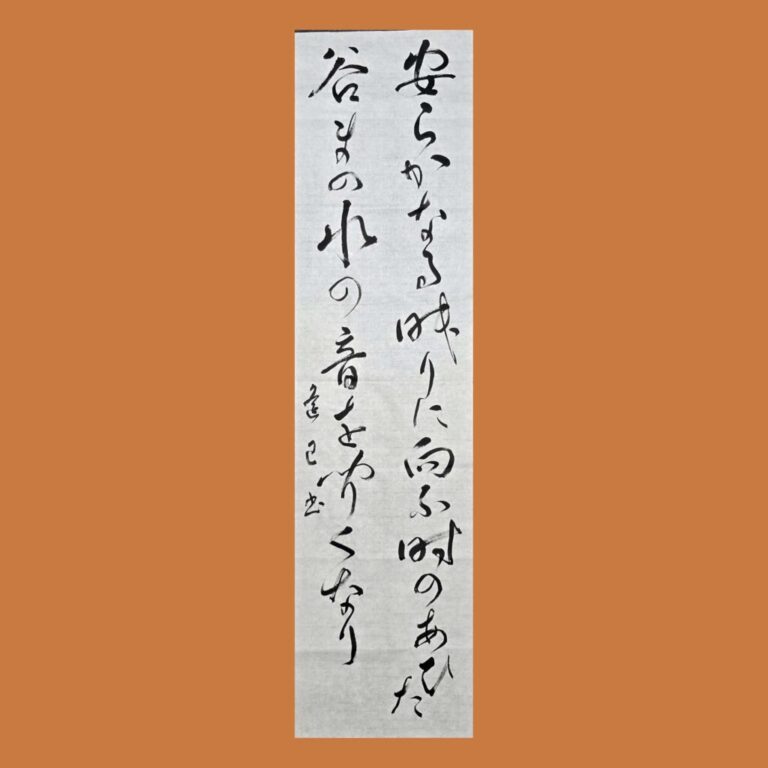 安らかなる眠りに向ふ時のあひだ
谷まの水の音を聞くなり
書